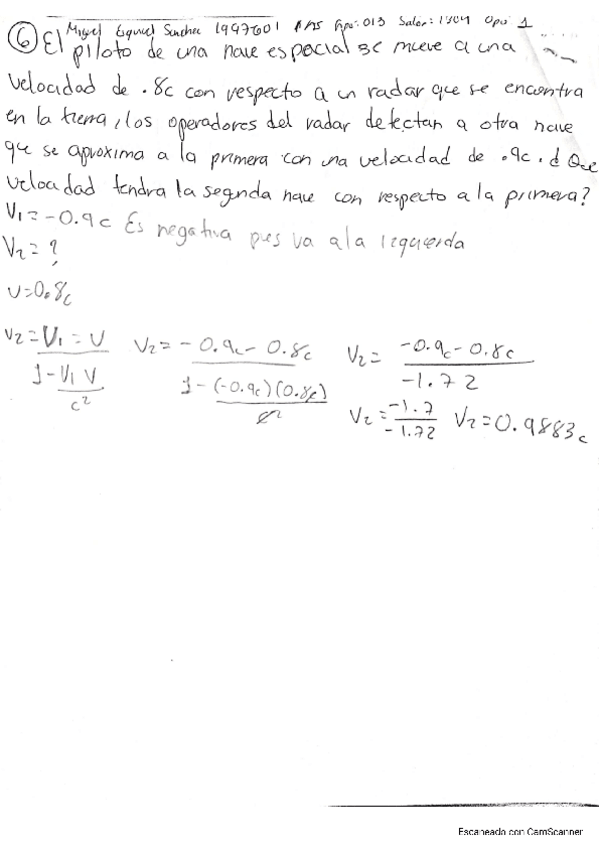 Miguel Ezquivel Sanchez 1997601 Gpo: 013 Salon: 1304 Opo 1
⑥ El piloto de una nave espacial se mueve a una
velocidad de .8c con respecto a un radar que se encontra
en la tierra, los operadores del radar detectan a otra nave
que se aproxima a la primera con una velocidad de .9c. ¿ Que
velocidad tendra la segunda nave con respecto a la primera?
V1 = -0.9c Es negativa pues va a la izquierda
V2 = ?
U=0.8c
V2 = V1 - U / 1 - V1 V / c² V2 = -0.9c - 0.8c / 1 - (-0.9c)(0.8c) / c² V2 = -0.9c - 0.8c / -1.72
V2 = -1.7 / -1.72 V2 = 0.9883c
Escaneado con CamScanner